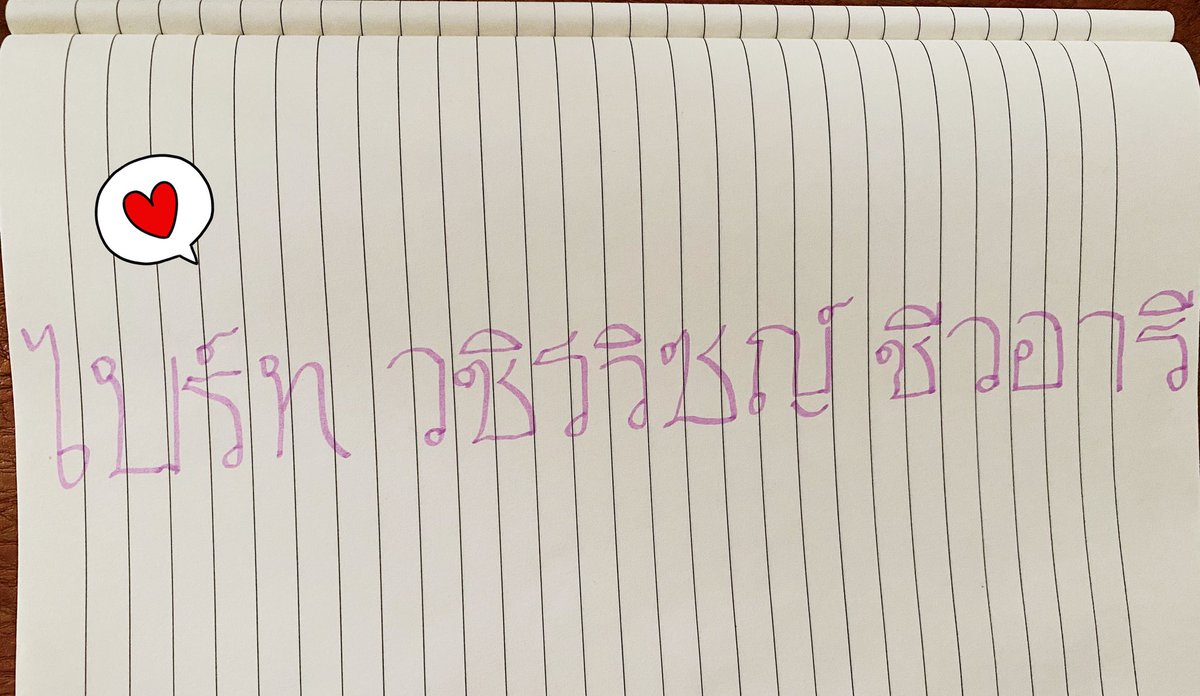 ไบร์ท วชิรวิชญ์ ชีวอารี